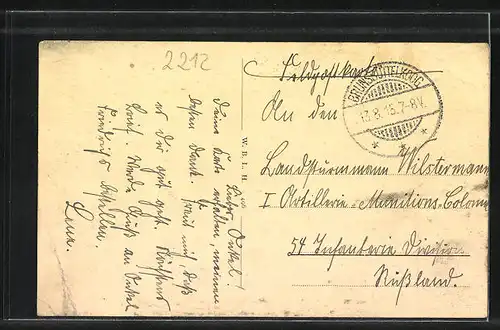 2212
Feldpostkarte
BRUNSBÜTTELKOOG
13.8.15.7-8V.
An den
Landsturmmann Wilstermann
I Artillerie-Munitions-Colonne
54 Infanterie Division
Rußland.
W. B. L. H.
Lieber Onkel!
Deine Karte erhalten, meinen
besten Dank. Freut mich daß
es Dir gut geht.
Gruß an Onkel
Friedrich bestellen.
Lene.